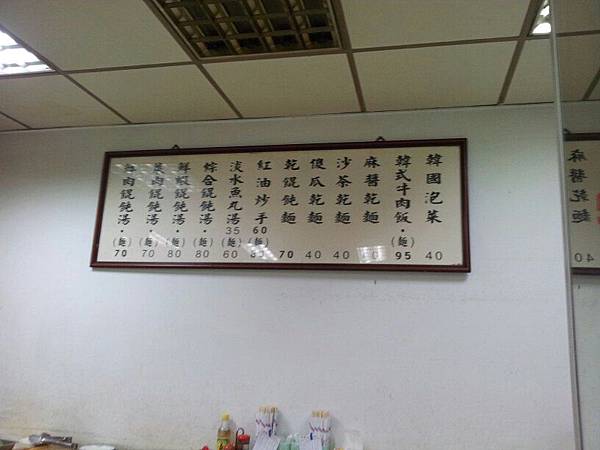 韓國泡菜 40
韓式牛肉飯・(麵) 95
麻醬乾麵
沙茶乾麵 40
傻瓜乾麵 40
乾餛飩麵 70
紅油炒手 60 (麵) 85
淡水魚丸湯 35 (麵) 60
綜合餛飩湯・(麵) 80
鮮蝦餛飩湯・(麵) 80
菜肉餛飩湯・(麵) 70
肉餛飩湯・(麵) 70
麻醬乾麵 40